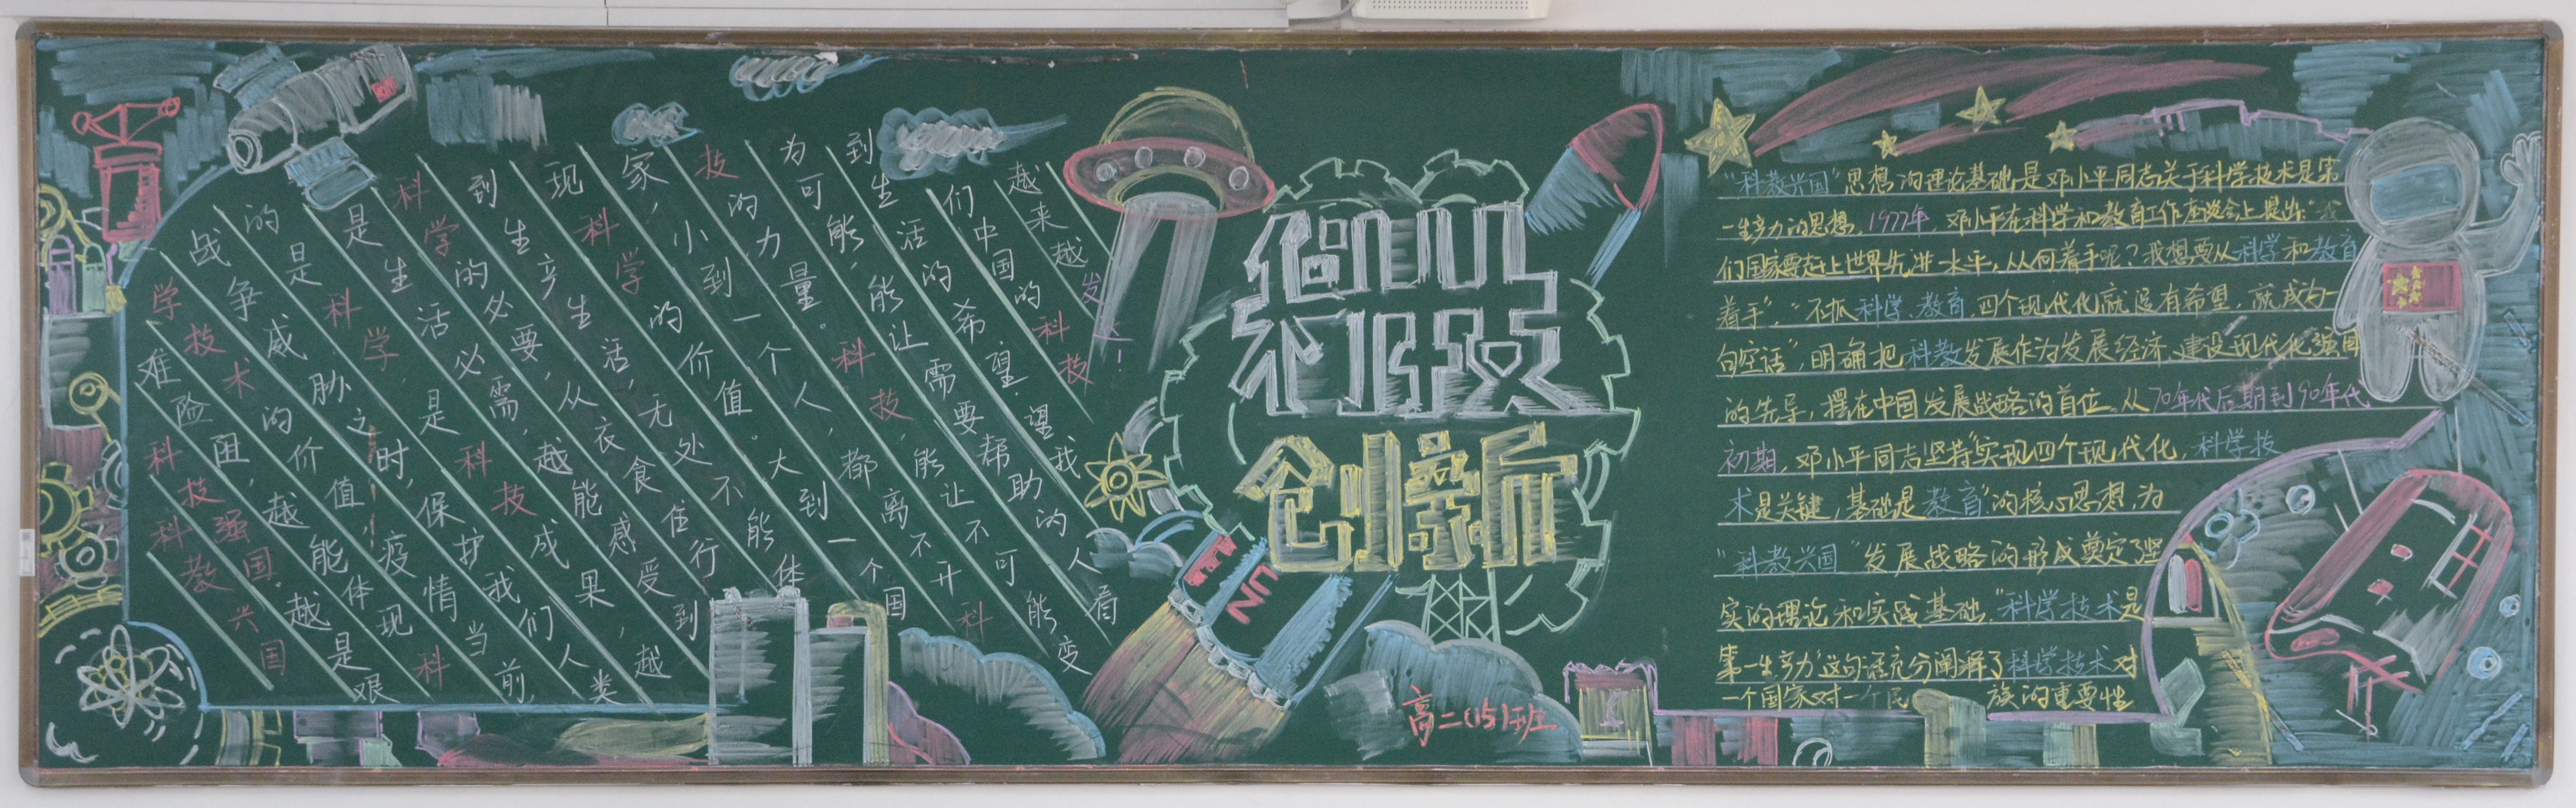 科教兴国
科技强国.越是艰
难险阻,越能体现科
学技术的价值,疫情当前,
战争威胁之时,保护我们人类
的是科学,是科技成果,越
是生活必需,越能感受到
科学的必要,从衣食住行
到生产生活,无处不能体
现科学的价值。大到一个国
家,小到一个人,都离不开科
技的力量。科技,能让不可能变
为可能,能让需要帮助的人看
到生活的希望.望我
们中国的科技
越来越发达!
科技
创新
UN
高二(15)班
“科教兴国”思想的理论基础,是邓小平同志关于科学技术是第
一生产力的思想。1977年,邓小平在科学和教育工作座谈会上提出:“我
们国家要赶上世界先进水平,从何着手呢?我想要从科学和教育
着手”,“不抓科学、教育,四个现代化就没有希望,就成为一
句空话”,明确把科教发展作为发展经济、建设现代化强国
的先导,摆在中国发展战略的首位。从70年代后期到90年代
初期,邓小平同志坚持“实现四个现代化,科学技
术是关键,基础是教育”的核心思想,为
“科教兴国”发展战略的形成奠定了坚
实的理论和实践基础.“科学技术是
第一生产力”这句话充分阐释了科学技术对
一个国家对一个民族的重要性